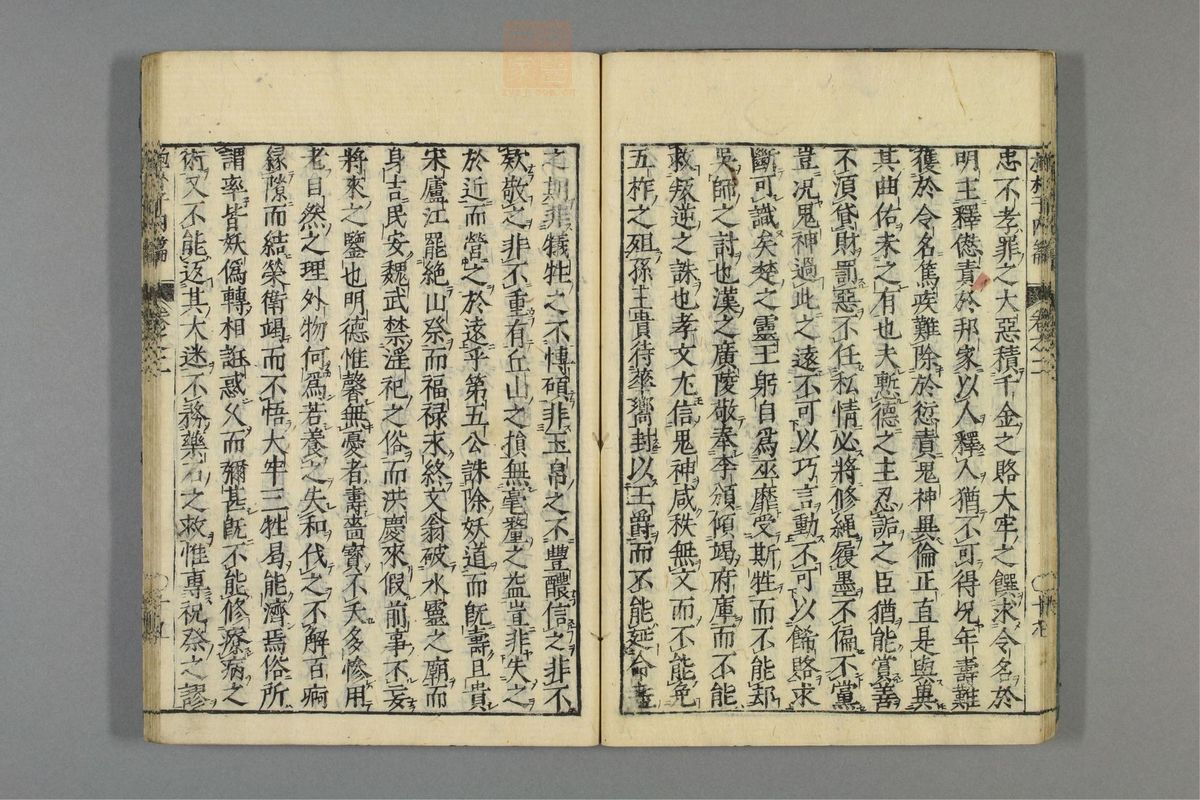 忠不孝罪之大惡積千金之賂大牢之饌求令名於
明主釋愆責於邦家以人釋人猶不可得況年壽難
獲於令名篤疾難除於愆責鬼神異倫正直是與冀
其曲佑未之有也夫慙德之主忍詬之臣猶能賞善
不須貸財罰惡不任私情必將修繩履墨不偏不黨
豈況鬼神過此之遠不可以巧言動不可以飾賂求
斷可識矣楚之靈王躬自為巫靡愛斯牲而不能却
吳師之討也漢之廣陵敬奉李頒傾竭府庫而不能
救叛逆之誅也孝文尤信鬼神咸秩無文而不能免
五柞之殂孫主貴待華嚮封以王爵而不能延命盡
之期非犧牲之不博碩非玉帛之不豐醲信之非不
欸敬之非不重有丘山之損無毫釐之益豈非失之
於近而營之於遠乎第五公誅除妖道而既壽且貴
宋廬江罷絕山祭而福祿永終文翁破水靈之廟而
身吉民安魏武禁淫祀之俗而洪慶來假前事不妄
將來之鑒也明德惟馨無憂者壽嗇寶不夭多慘用
老自然之理外物何為若養之失和伐之不解百痾
緣隙而結榮衛竭而不悟大牢三牲曷能濟焉俗所
謂率皆妖偽轉相誑惑久而彌甚既不能修療病之
術又不能返其大迷不務藥石之救惟專祝祭之謬